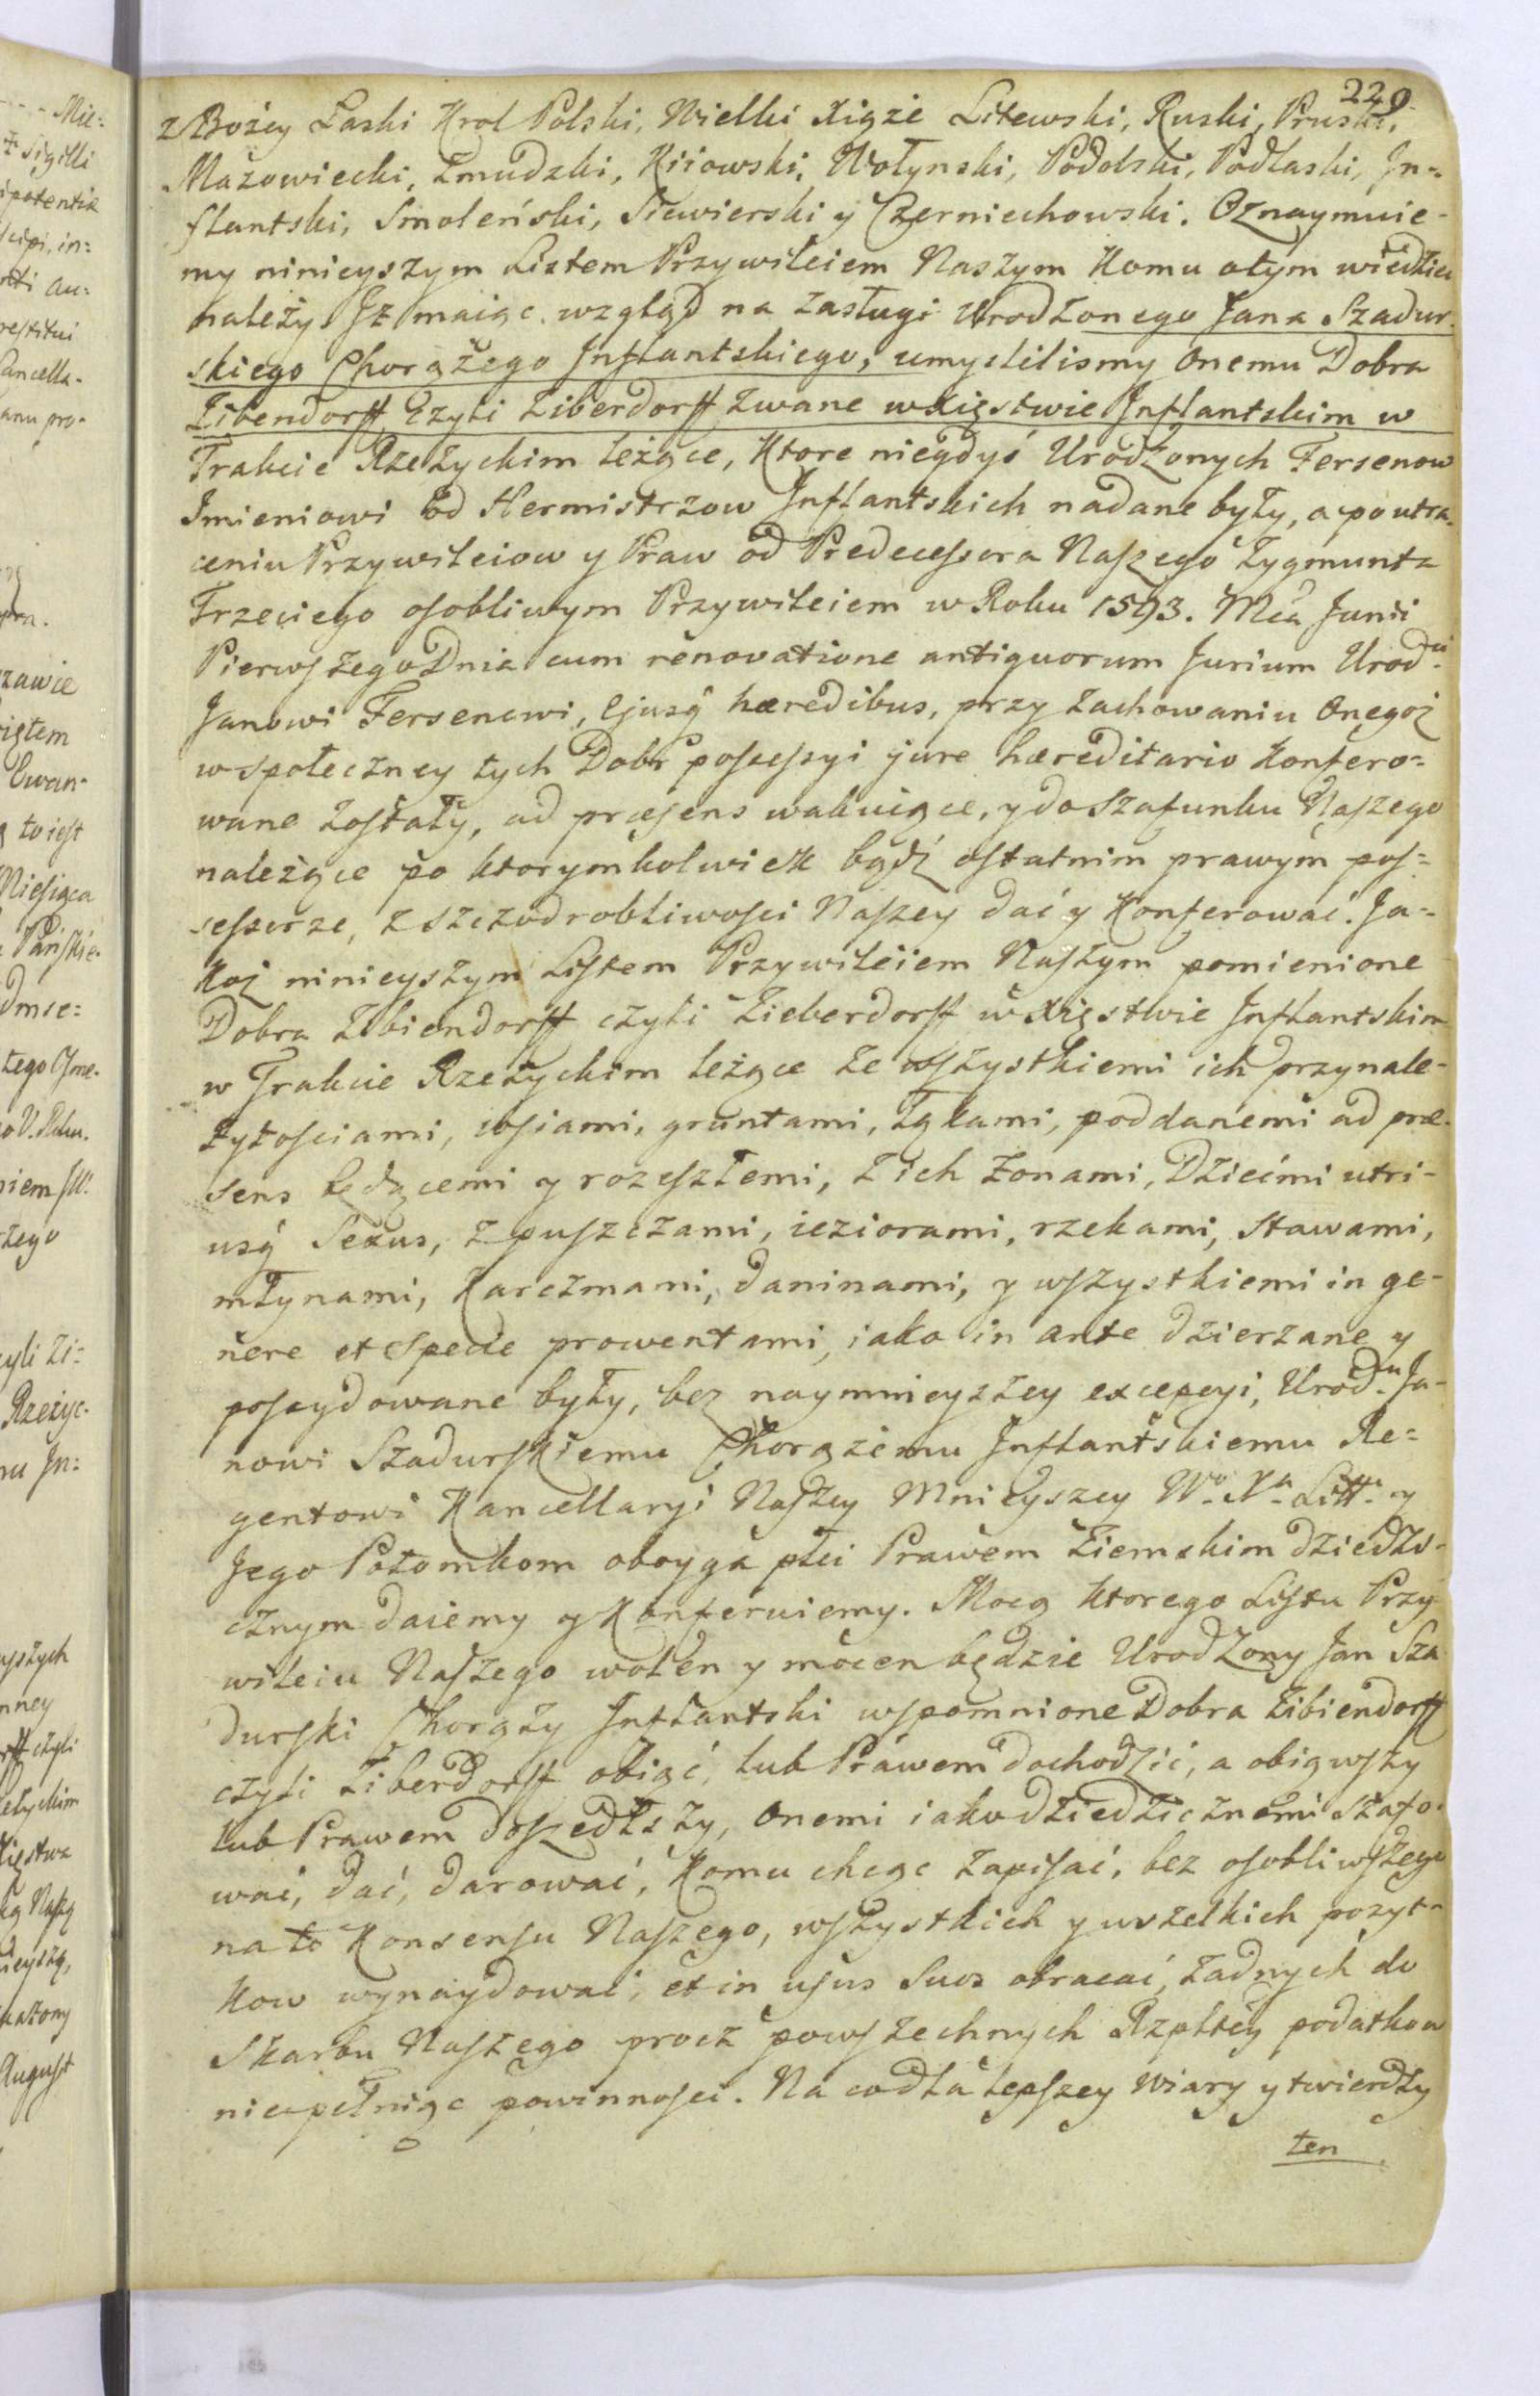 229.
z Bożey Łaski Krol Polski, Wielki Xiąże Litewski, Ruski, Pruski,
Mazowiecki, Zmudzki, Kiiowski, Wołynski, Podolski, Podlaski, In=
flantski, Smoleński, Siewierski y Czerniechowski. Oznaymuie-
my ninieyszym Listem Przywileiem Naszym Komu otym wiedziec
należy. Iż maiąc wzgląd na zasługi Urodzonego Jana Szadur-
skiego Chorążego Inflantskiego, umyslilismy Onemu Dobra
Zibendorff Czyli Ziberdorff zwane w Xięstwie Inflantskim w
Trakcie Rzeżyckim leżące, Ktore niegdyś Urodzonych Fersenow
Imieniowi od Hermistrzow Inflantskich nadane były, a po utra-
ceniu Przywileiow y Praw od Predecessora Naszego Zygmunta
Trzeciego osobliwym Przywileiem w Roku 1593. Mca Junii
Pierwszego Dnia cum renovatione antiquorum Jurium Urod:
Janowi Fersenowi, Ejusq haeredibus, przy zachowaniu Onegoż
w społeczney tych Dobr possessyi jure haereditario Konfero=
wane zostały, ad praesens wakuiące, y do szafunku Naszego
należące po ktorymkolwiek bądź ostatnim prawym pos=
sessorze, z szczodrobliwosci Naszey dać y Konferować. Ja=
koż ninieyszym Listem Przywileiem Naszym pomienione
Dobra Zibiendorff czyli Zieberdorff w Xięstwie Inflantskim
w Trakcie Rzeżyckim leżące ze wszystkiemi ich przynale-
żytosciami, wsiami, gruntami, łąkami, poddanemi ad prae-
sens będącemi y rozeszłemi, z ich żonami, Dziećmi utri-
usq Sexus, z puszczami, ieziorami, rzekami, stawami,
młynami, Karczmami, daninami, y wszystkiemi in ge-
nere et specie prowentami, iako in ante dzierzane y
possydowane były, bez naymnieyszey excepcyi, Urod: Ja-
nowi Szadurskiemu Chorążemu Inflantskiemu Re=
gentowi Kancellaryi Naszey Mnieyszey Wo Xa Litt: y
Jego Potomkom oboyga płci Prawem Ziemskim dziedzi-
cznym daiemy y Konferuiemy. Mocą Ktorego Listu Przy
wileiu Naszego wolen y mocen będzie Urodzony Jan Sza
durski Chorąży Inflantski wspomnione Dobra Zibiendorff
czyli Ziberdorff obiąć, lub Prawem dochodzić, a obiąwszy
lub Prawem doszedłszy, Onemi iako dziedzicznemi szafo-
wać, dać, darować, Komu chcąc zapisać, bez osobliwszego
na to Konsensu Naszego, wszystkich y wszelkich pożyt-
kow wynaydować, et in usus suos obracać, żadnych do
Skarbu Naszego procz powszechnych Rzpltey podatkow
niepełniąc powinnosci. Na co dla lepszey wiary y twierdzy
ten